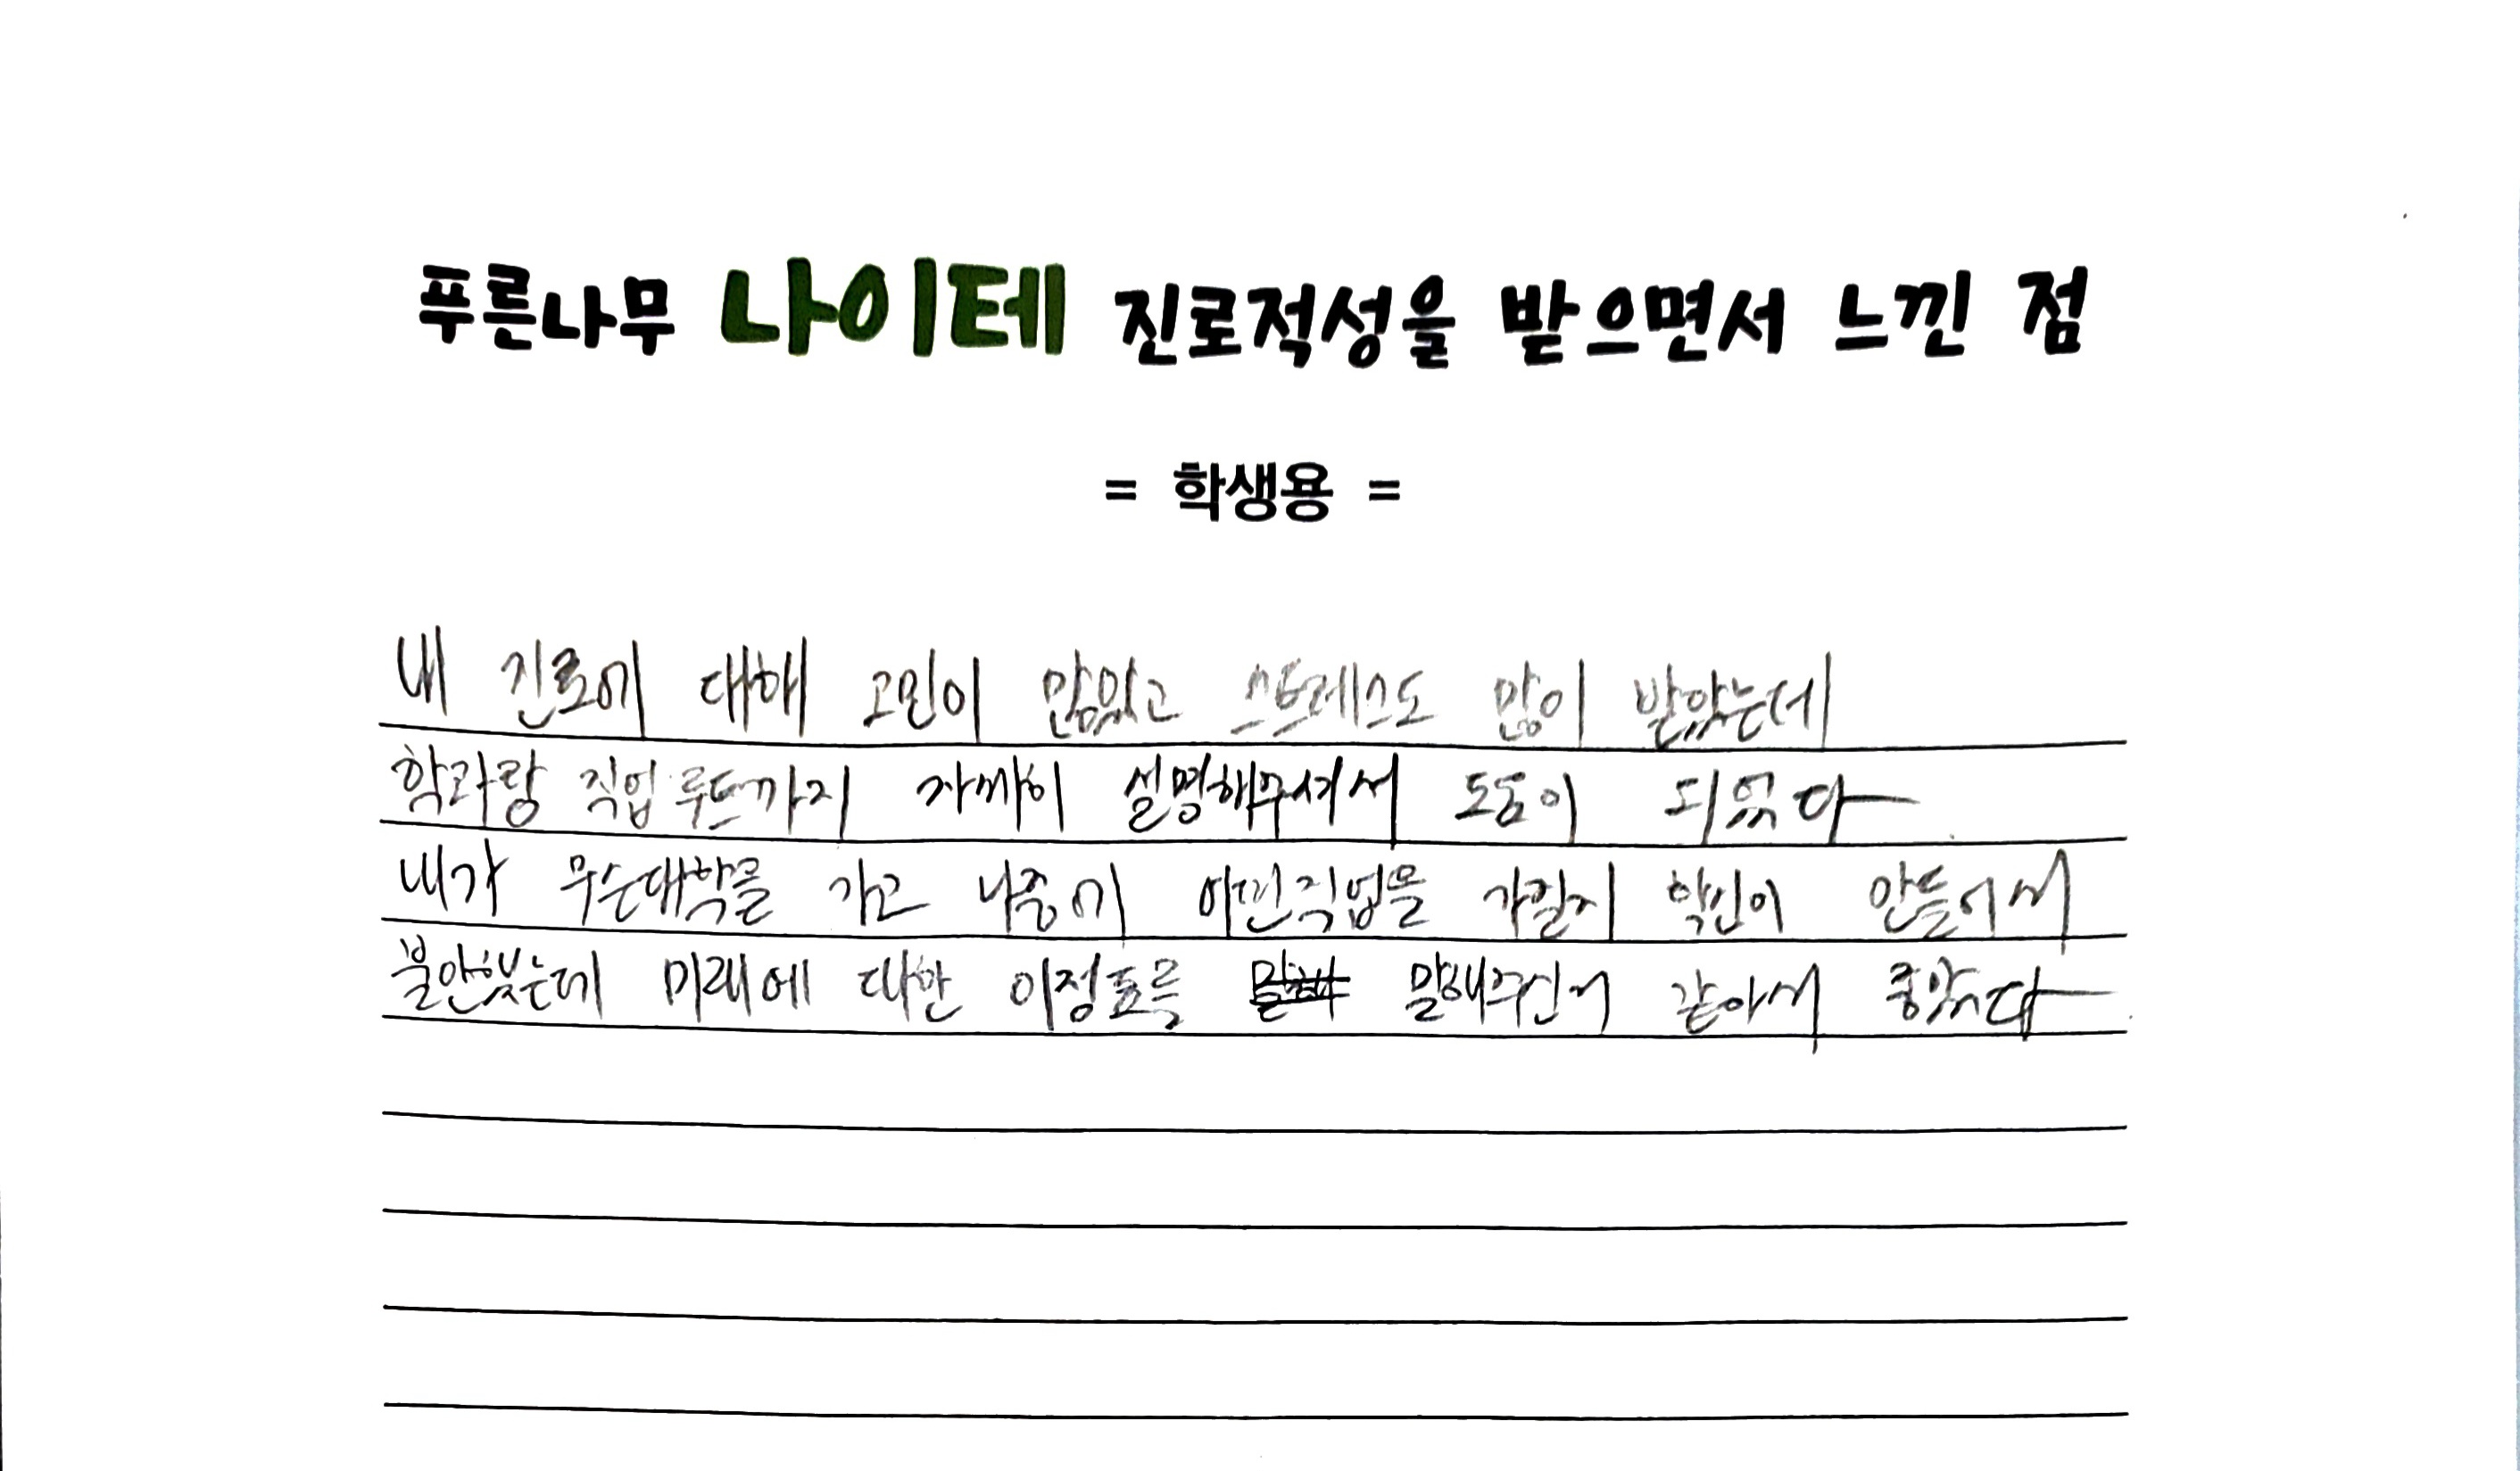 푸른나무 나이테 진로적성을 받으면서 느낀 점
= 학생용 =
내 진로에 대해 고민이 많았고 스트레스도 많이 받았는데
학과랑 직업 루트까지 자세히 설명해주셔서 도움이 되었다
내가 무슨대학을 가고 나중에 어떤직업을 가질지 확신이 안들어서
불안했는데 미래에 대한 이정표를 말해주신거 같아서 좋았다